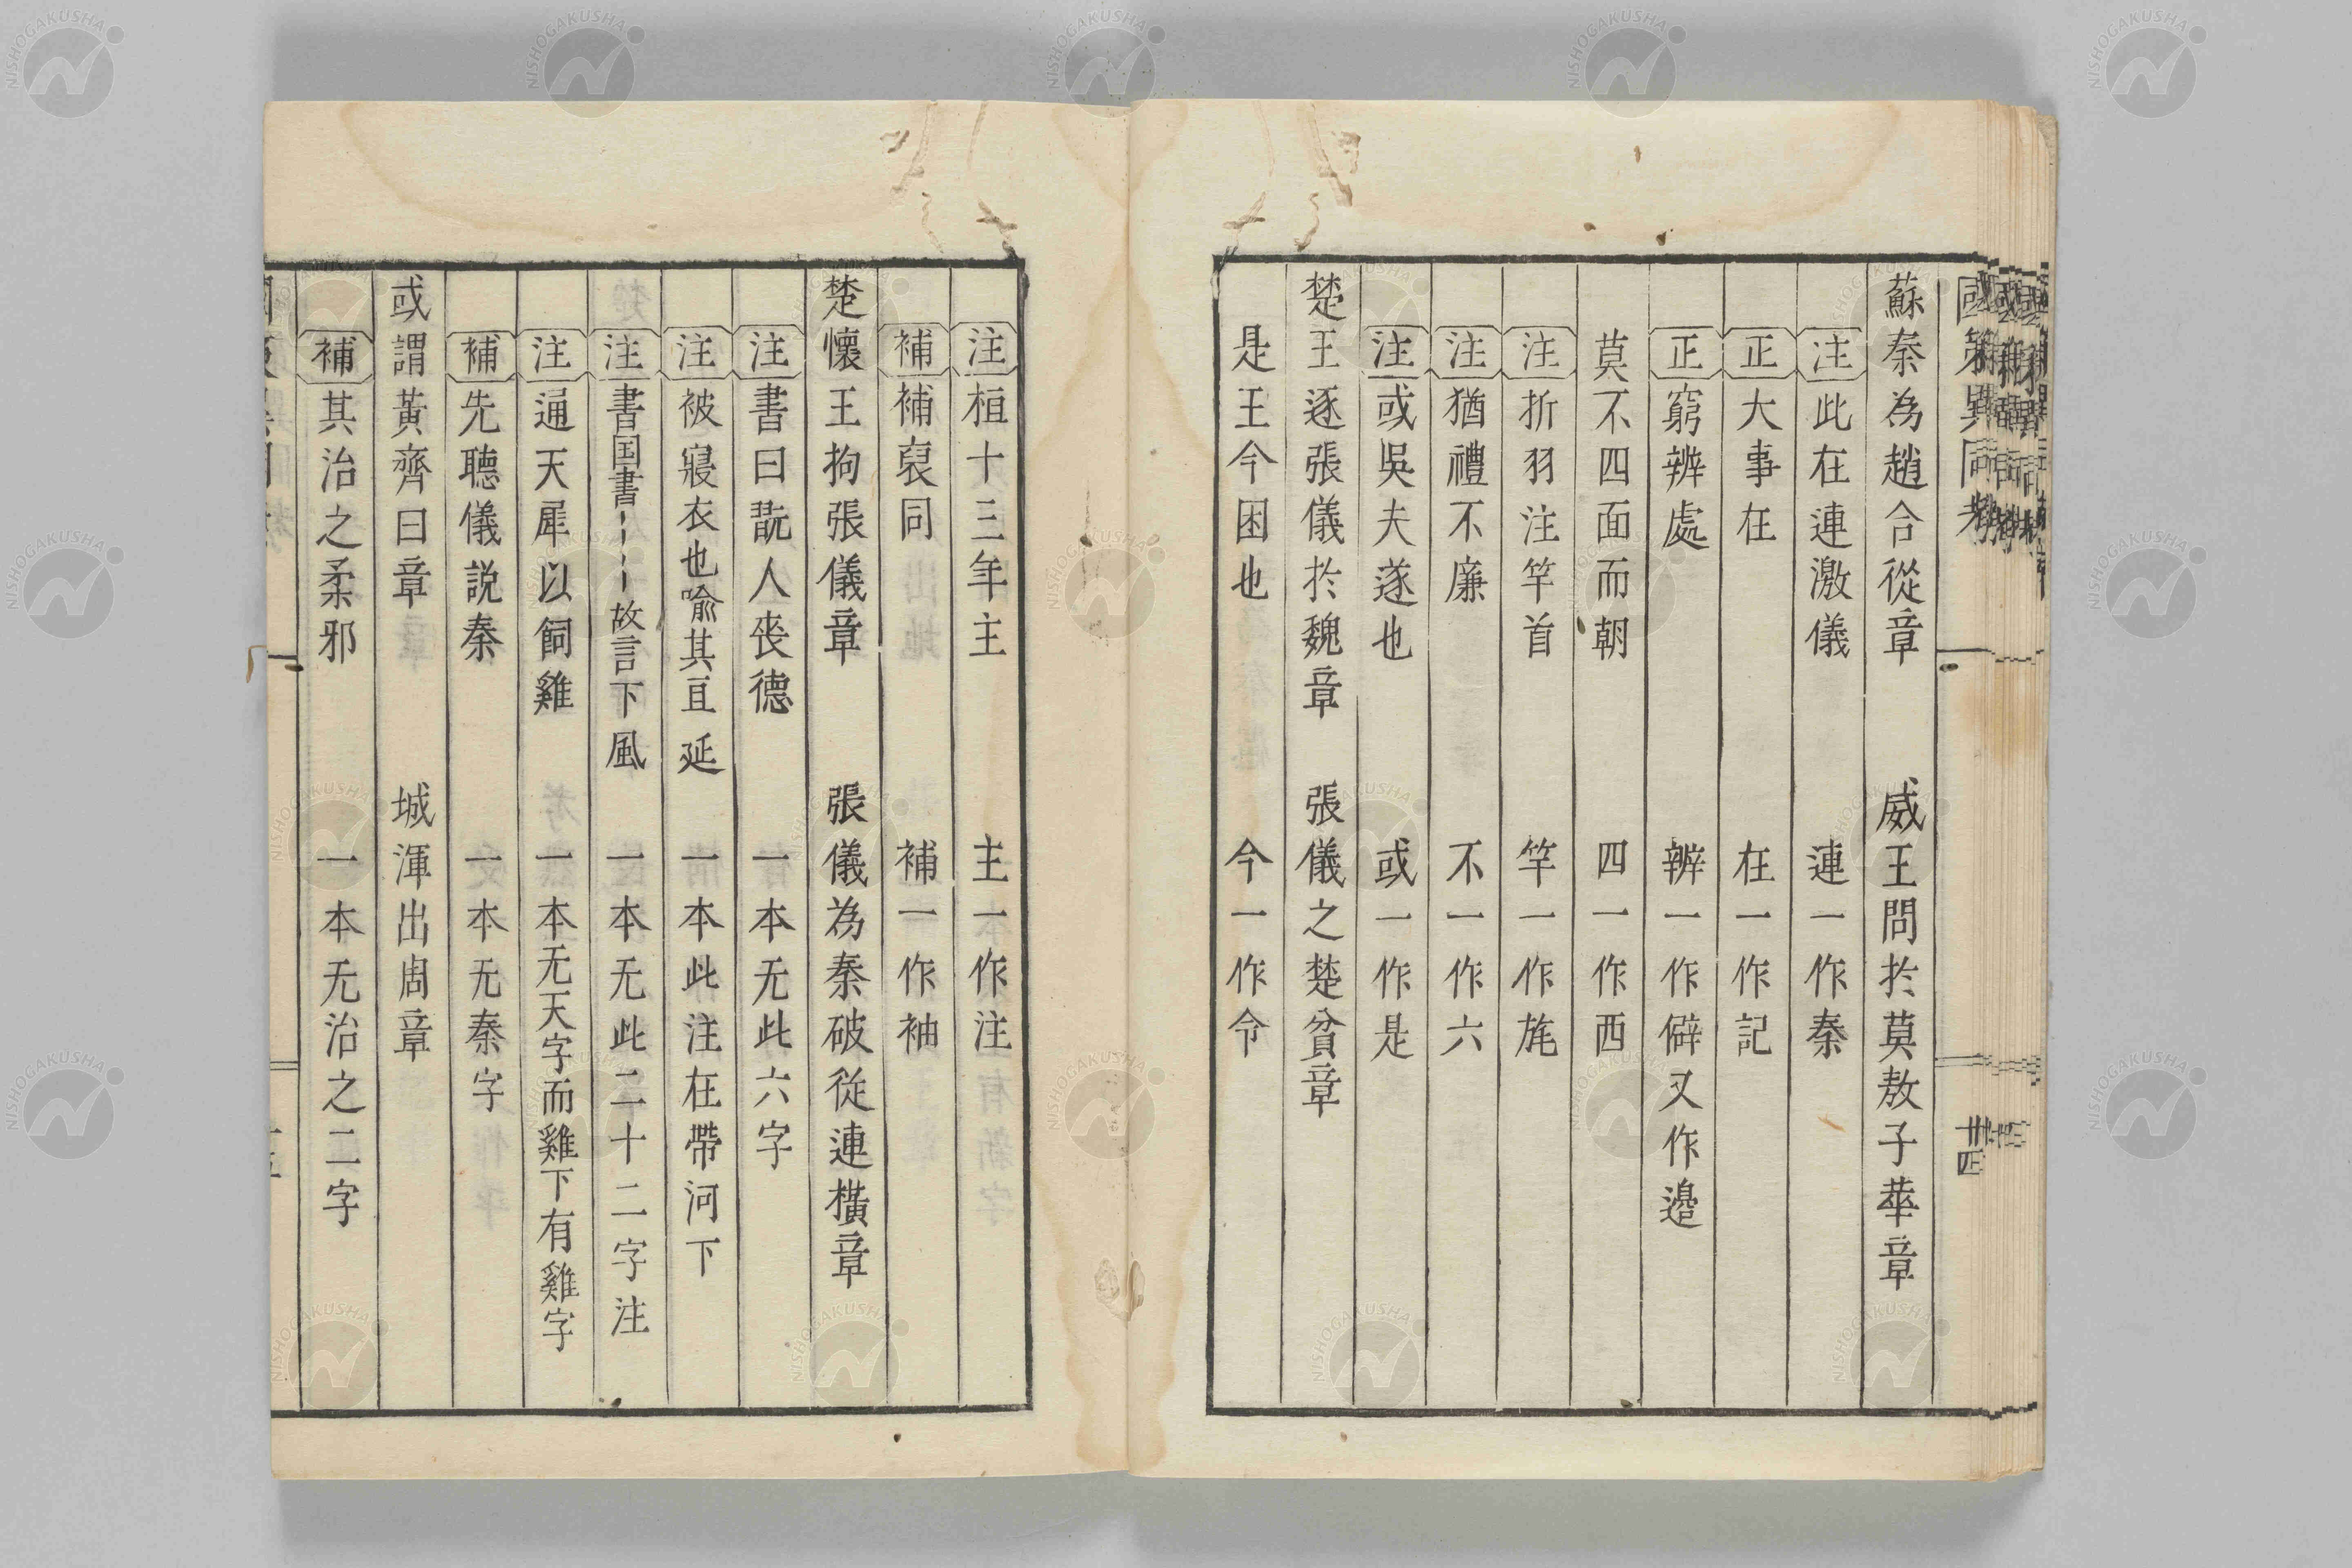 蘇秦為趙合從章　威王問於莫敖子華章
注　此在連激儀　連一作秦
正　大事在　在一作記
正　窮辨處　辨一作僻又作邉
莫不四面而朝　四一作西
注　折羽注竿首　竿一作旄
注　猶禮不廉　不一作六
注　或吳夫遂也　或一作是
楚王逐張儀於魏章　張儀之楚貧章
是王今困也　今一作令
注　桓十三年主　主一本作注
補　補裒同　補一作袖
楚懷王拘張儀章　張儀為秦破從連橫章
注　書曰翫人喪德　一本无此六字
注　被寢衣也喻其亘延　一本此注在帶河下
注　書国書故言下風　一本无此二十二字注
注　通天犀以飼雞　一本无天字而雞下有雞字
補　先聽儀説秦　一本无秦字
或謂黃齊曰章　城渾出周章
補　其治之柔邪　一本无治之二字